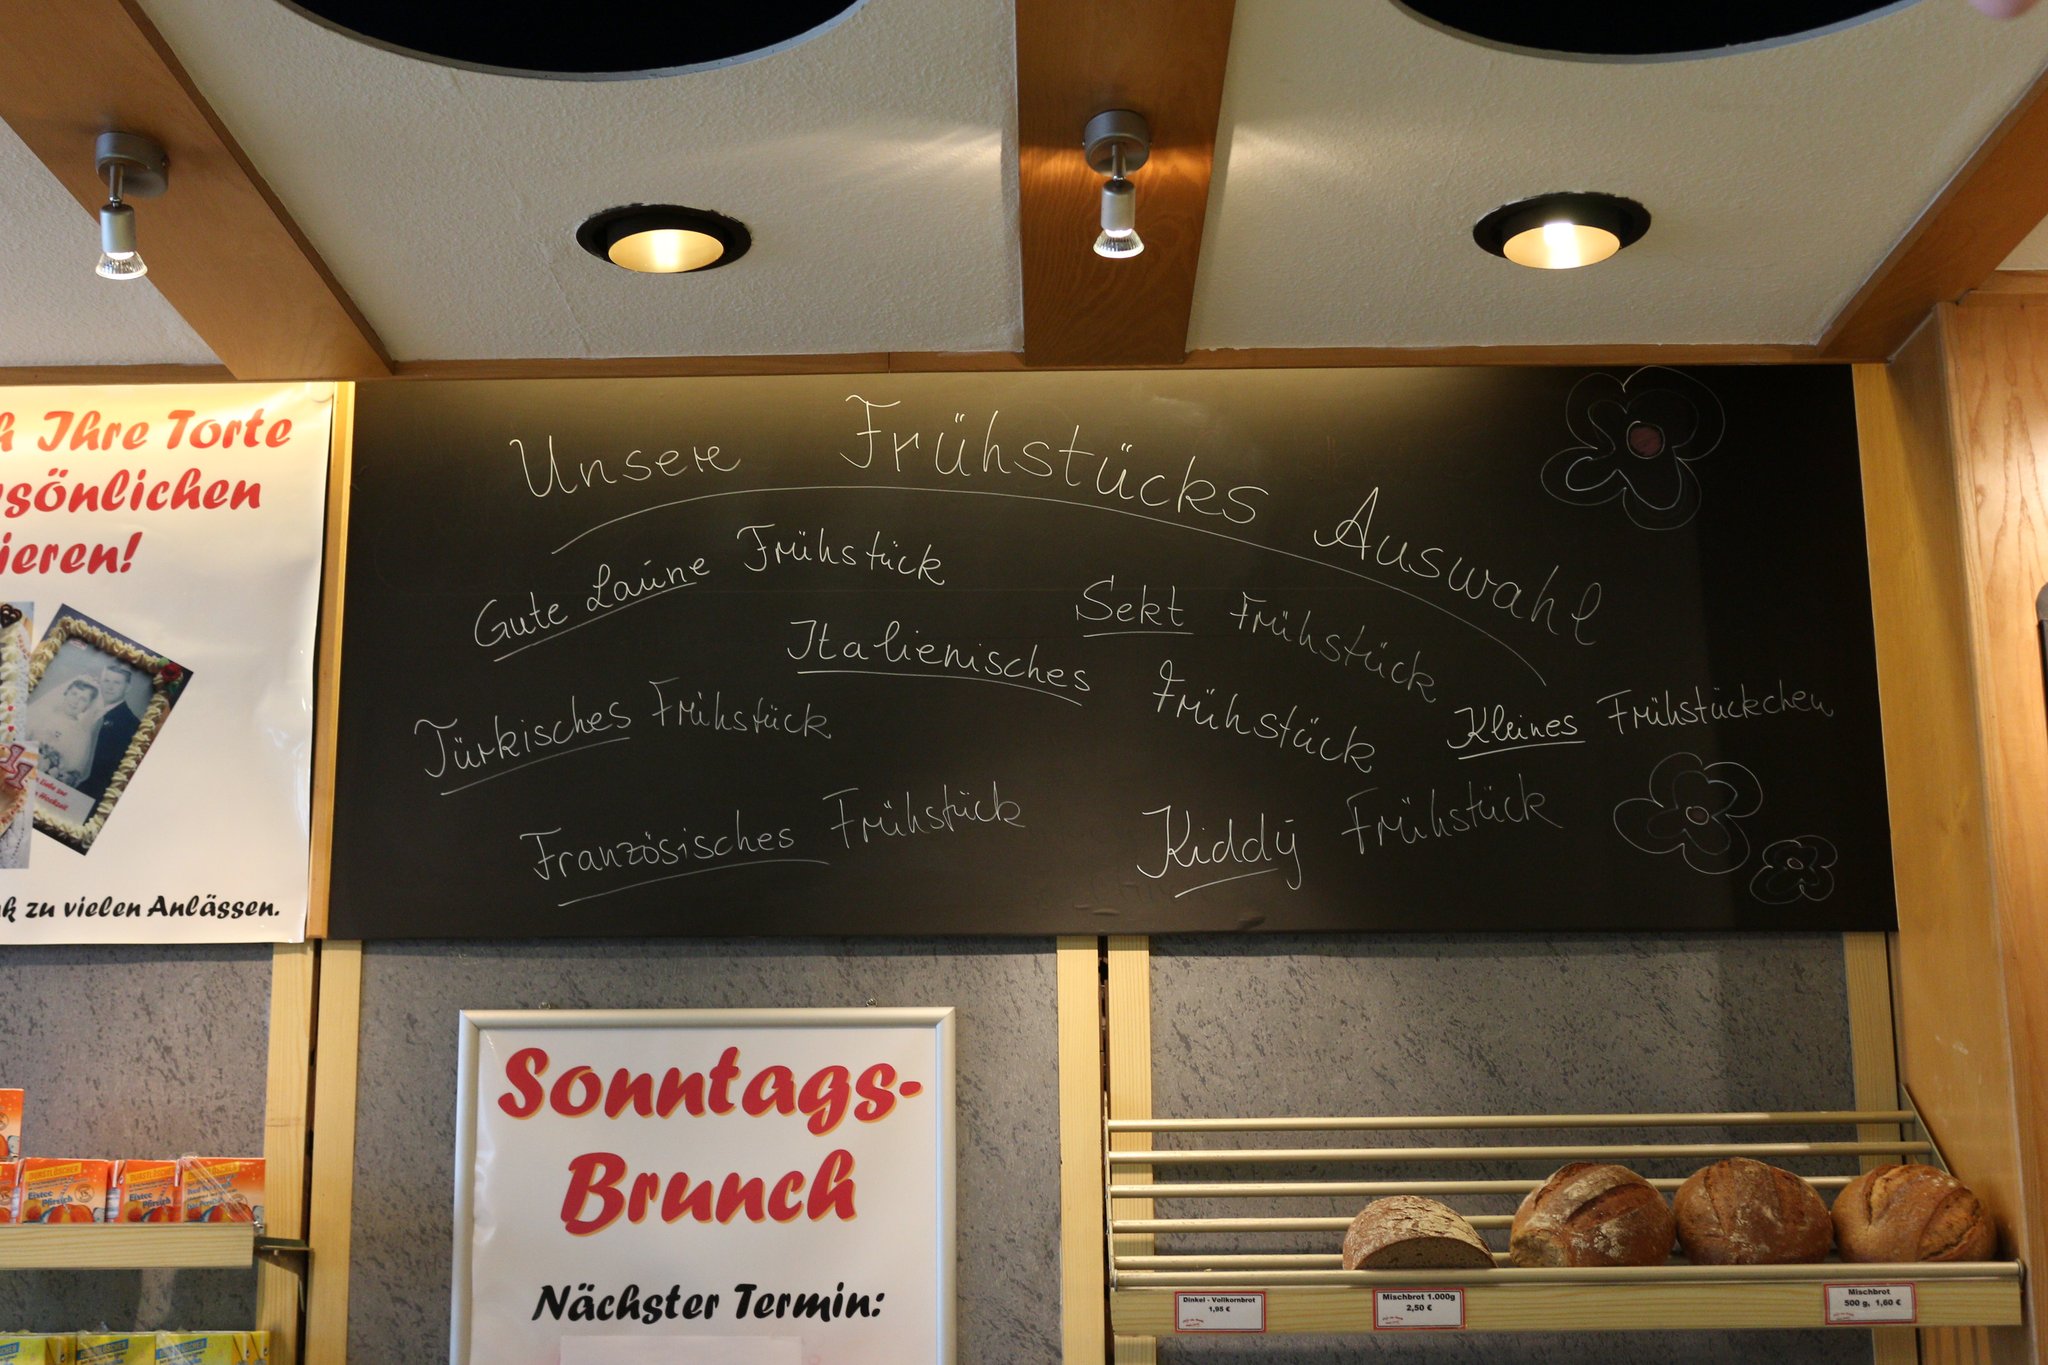 h Ihre Torte
rsönlichen
ieren!
k zu vielen Anlässen.
Unsere Frühstücks Auswahl
Gute Laune Frühstück
Sekt Frühstück
Italienisches Frühstück
Kleines Frühstückchen
Türkisches Frühstück
Französisches Frühstück
Kiddy Frühstück
Sonntags-
Brunch
Nächster Termin:
DURSTLÖSCHER
Eistee
Pfirsich
Eistee
Pfirsich
Dinkel - Vollkornbrot
1,95 €
Mischbrot 1.000g
2,50 €
Mischbrot
500 g, 1,60 €